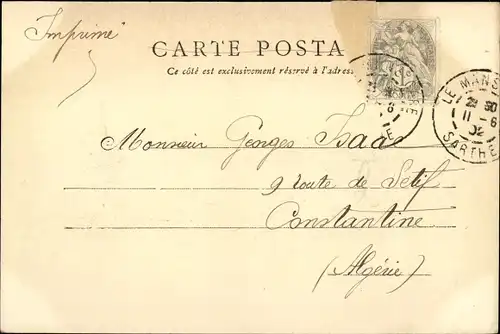 Imprimé
CARTE POSTA
Ce côté est exclusivement réservé à l'adres
LE MANS
23 30
11 - 6
02
SARTHE
Monsieur Georges Isaac
9 route de Setif
Constantine
(Algérie)